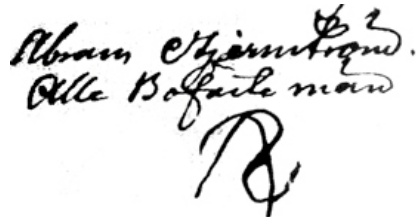 Abram Stjernström.
Alla Bofaste män